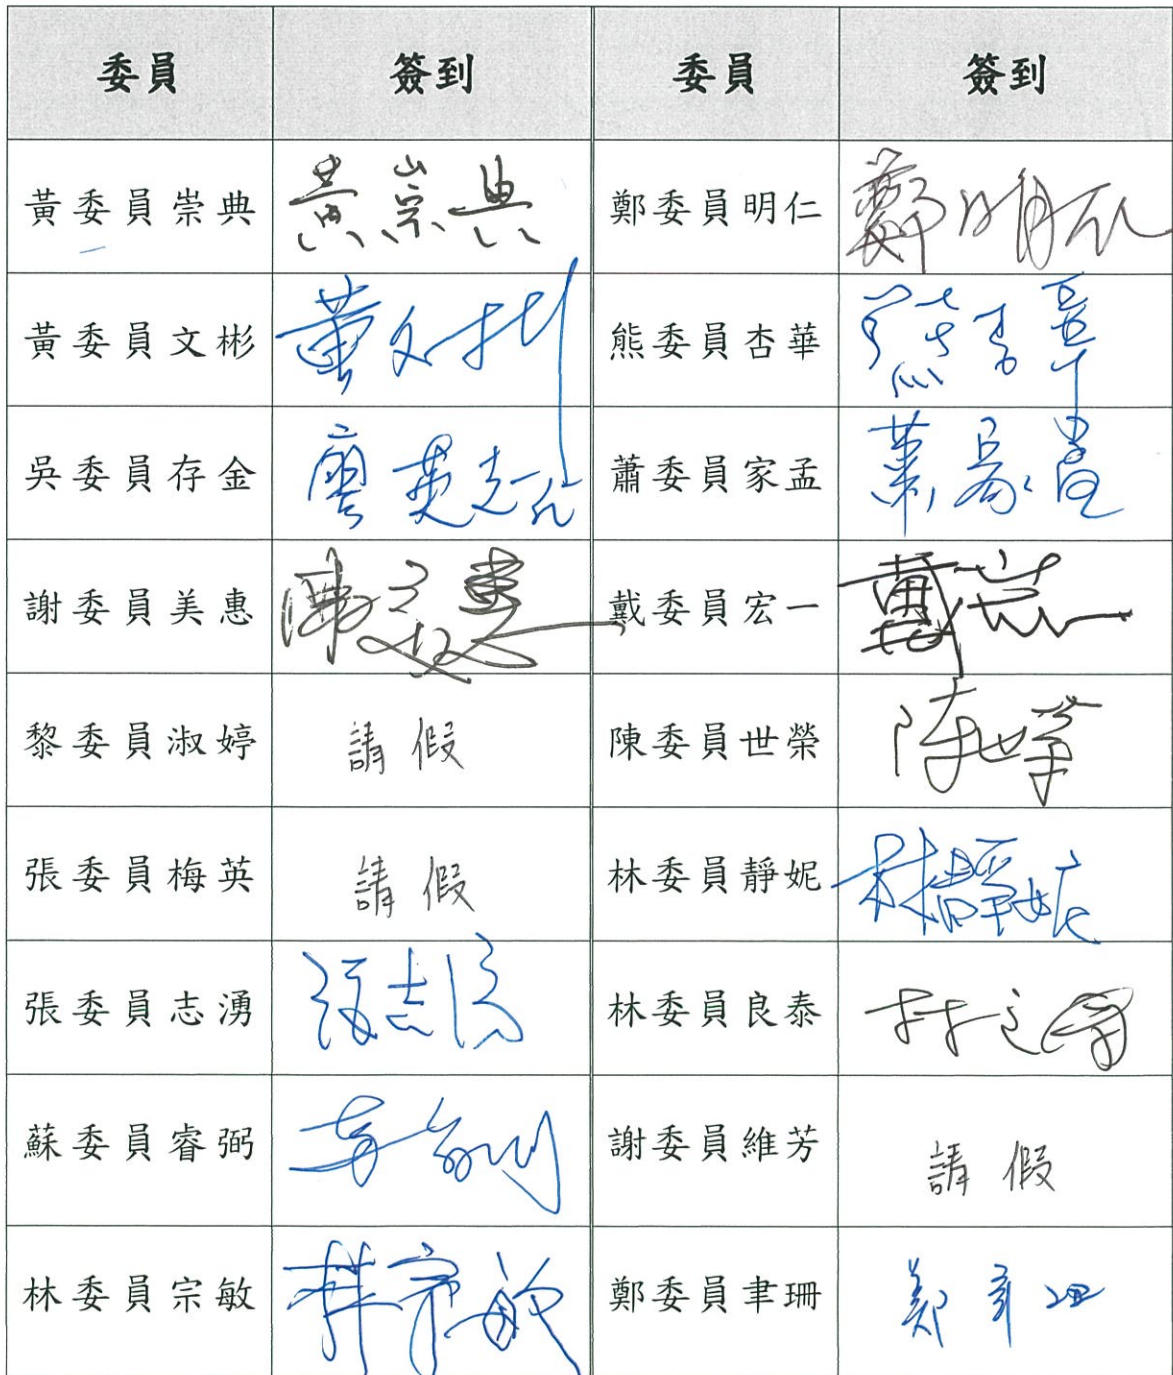 委員 簽到 委員 簽到
黃委員崇典 黃崇典 鄭委員明仁 鄭明仁
黃委員文彬 黃文彬 熊委員杏華 熊杏華
吳委員存金 蕭委員家孟 蕭家孟
謝委員美惠 戴委員宏一
黎委員淑婷 請假 陳委員世榮 陈世榮
張委員梅英 請假 林委員靜妮 林靜妮
張委員志湧 林委員良泰
蘇委員睿弼 謝委員維芳 請假
林委員宗敏 林宗敏 鄭委員聿珊